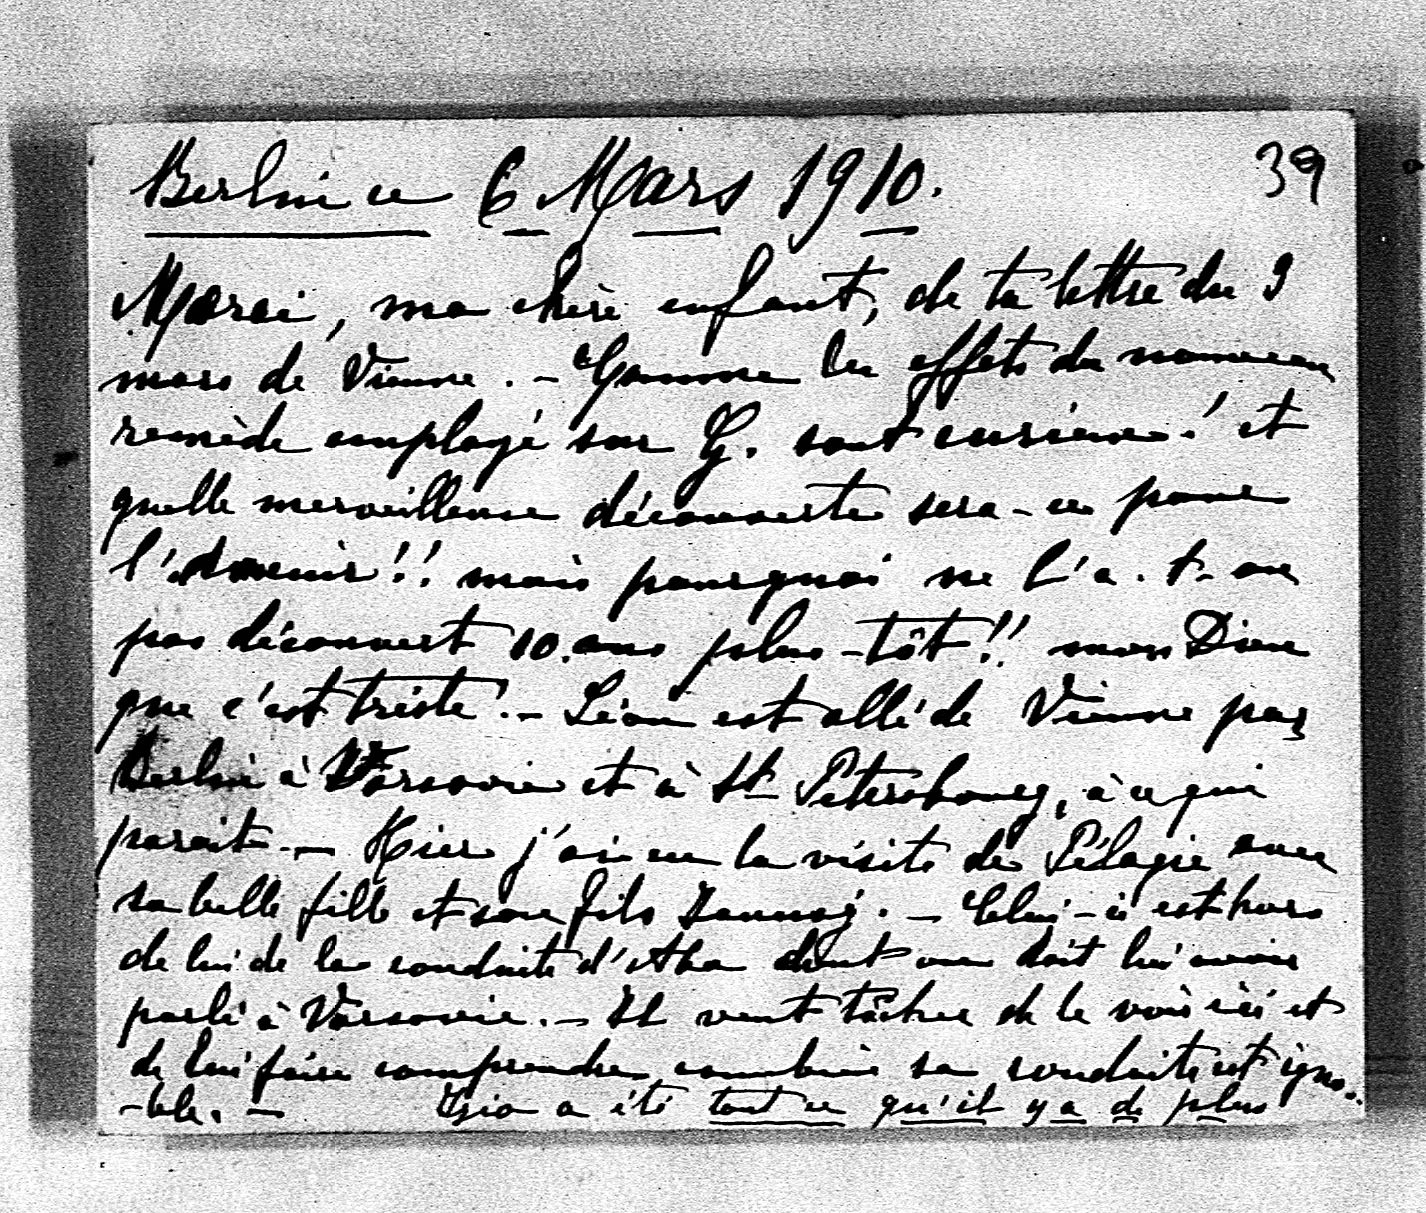 39
Berlin ce 6 Mars 1910.
Merci, ma chère enfant, de ta lettre du 3
mars de Vienne. – Comme les effets du nouveau
remède employé sur G. sont curieux! et
quelle merveilleuse découverte sera-ce pour
l'avenir!! mais pourquoi ne l'a-t-on
pas découvert 10 ans plus-tôt!! mon Dieu
que c'est triste! – Léon est allé de Vienne par
Berlin à Varsovie et à St Pétersbourg, à ce qui
parait. – Hier j'ai eu la visite de Pélagie avec
sa belle fille et son fils. – Celui-ci est hors
de lui de la conduite d'Aba dont on doit lui avoir
parlé à Varsovie. – Il veut tâcher de le voir ici et
de lui faire comprendre combien sa conduite est igno-
-ble. – a été tout ce qu'il y a de plus